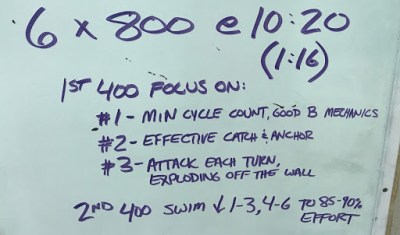 6 x 800 @ 10:20
(1:16)
1ST 400 FOCUS ON:
#1 - MIN CYCLE COUNT, GOOD B MECHANICS
#2 - EFFECTIVE CATCH & ANCHOR
#3 - ATTACK EACH TURN,
EXPLODING OFF THE WALL
2ND 400 SWIM ↓ 1-3, 4-6 TO 85-90%
EFFORT